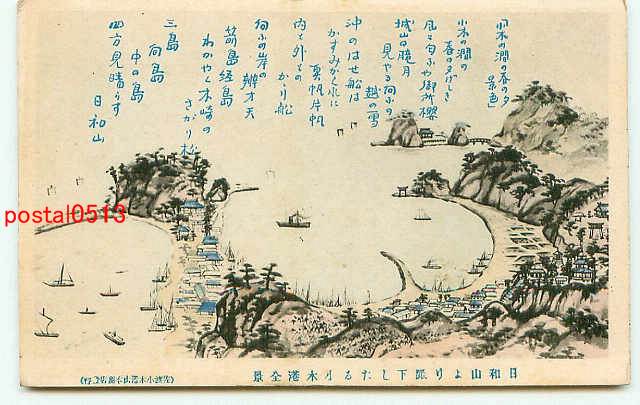 「小木の澗の春の夕
景色」
小木の澗の
春の夕げしき
風も匂ふや御所櫻
城山の朧月
見やる向ふの
越の雪
沖のはせ船は
かすみがくれに
真帆片帆
内と外との
かり船
向ふの岸の
辨才天
筍島経島
わかやく木崎の
さがり松
三島
向島
中の島
四方見晴らす
日和山
postal0513
日和山より眼下したる小木港全景